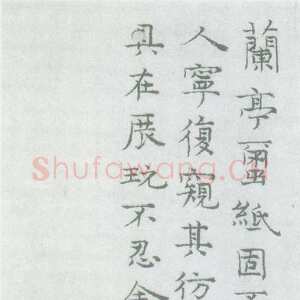 蘭亭蠒紙固
人寧復窺其彷
具在展玩不忍
Shufawang.cn